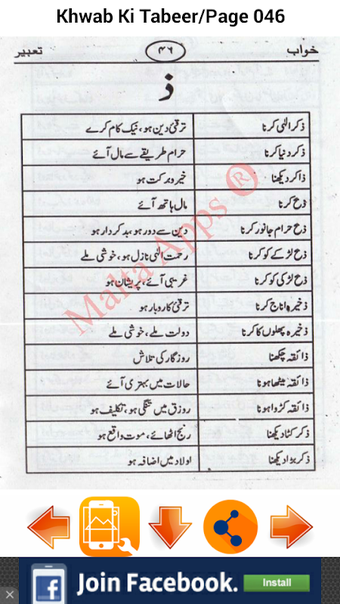 Khwab Ki Tabeer/Page 046
خواب ۴۶ تعبیر
ذ
ذکر الٰہی کرنا ترقیٔ دین ہو، نیک کام کرے
ذکر دنیا کرنا حرام طریقے سے مال آئے
ذاکر دیکھنا خیر و برکت ہو
ذبح کرنا مال ہاتھ آئے
ذبح حرام جانور کرنا دین سے دور ہو، بد کردار ہو
ذبح لڑکے کو کرنا رحمت الٰہی نازل ہو، خوشی ملے
ذبح لڑکی کو کرنا غریبی آئے، پریشان ہو
ذخیرہ اناج کرنا ترقیٔ کاروبار ہو
ذخیرہ پھلوں کا کرنا دولت ملے، خوشی ملے
ذائقہ چکھنا روزگار کی تلاش
ذائقہ میٹھا ہونا حالات میں بہتری آئے
ذائقہ کڑوا ہونا روزق میں تنگی ہو، تکلیف ہو
ذکر کٹا دیکھنا رنج اٹھائے، موت واقع ہو
ذکر بڑا دیکھنا اولاد میں اضافہ ہو
Malta Apps ®
Join Facebook. Install